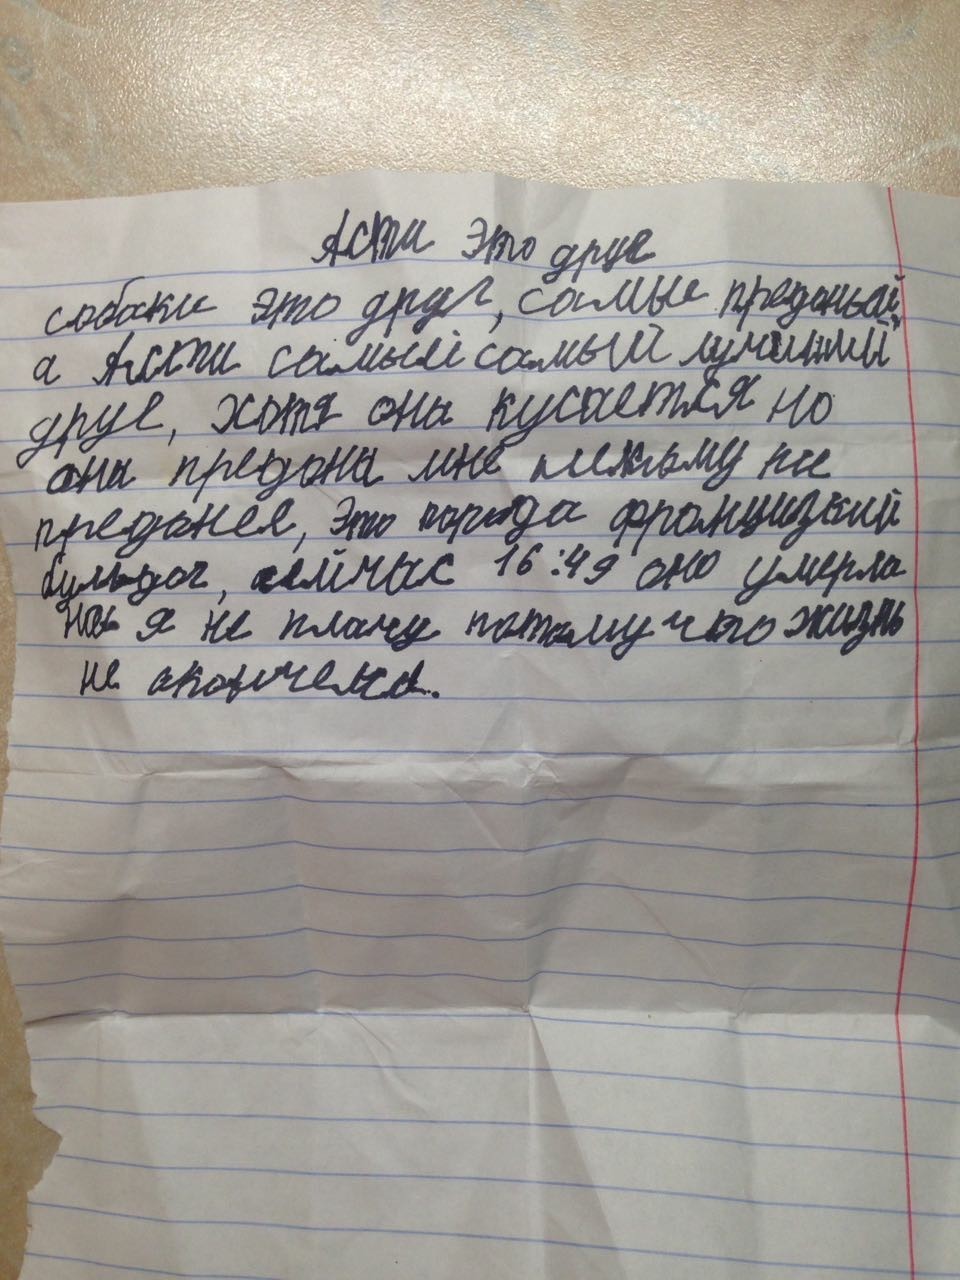 Асти это друг
собаки это друг, самые преданый,
а Асти самый самый лучший
друг, хотя она кусается но
она предана мне некому не
преданея, это порода францизкий
бульдог, сейчас 16:49 оно умерла
но я не плачу потому что жизнь
не окончена.